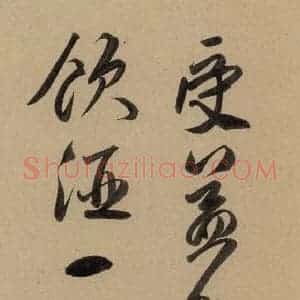 受益
飲酒一
Shufaziliao.COM